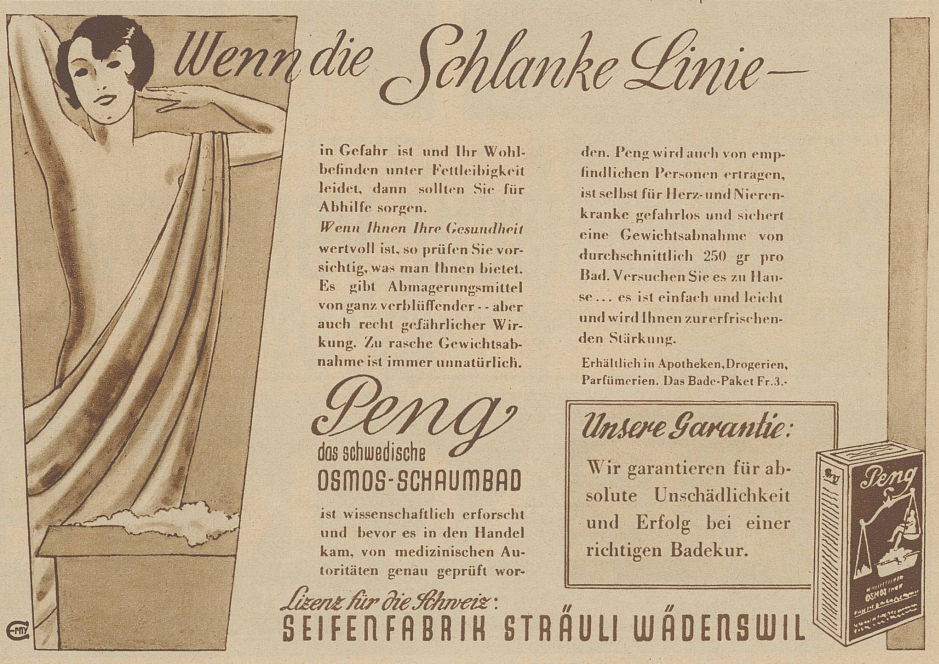 Wenn die Schlanke Linie —
in Gefahr ist und Ihr Wohl-
befinden unter Fettleibigkeit
leidet, dann sollten Sie für
Abhilfe sorgen.
Wenn Ihnen Ihre Gesundheit
wertvoll ist, so prüfen Sie vor-
sichtig, was man Ihnen bietet.
Es gibt Abmagerungsmittel
von ganz verblüffender -- aber
auch recht gefährlicher Wir-
kung. Zu rasche Gewichtsab-
nahme ist immer unnatürlich.
Peng
das schwedische
OSMOS-SCHAUMBAD
ist wissenschaftlich erforscht
und bevor es in den Handel
kam, von medizinischen Au-
toritäten genau geprüft wor-
den. Peng wird auch von emp-
findlichen Personen ertragen,
ist selbst für Herz- und Nieren-
kranke gefahrlos und sichert
eine Gewichtsabnahme von
durchschnittlich 250 gr pro
Bad. Versuchen Sie es zu Hau-
se... es ist einfach und leicht
und wird Ihnen zur erfrischen-
den Stärkung.
Erhältlich in Apotheken, Drogerien,
Parfümerien. Das Bade-Paket Fr. 3.-
Unsere Garantie:
Wir garantieren für ab-
solute Unschädlichkeit
und Erfolg bei einer
richtigen Badekur.
Peng
OSMOS
Lizenz für die Schweiz:
SEIFENFABRIK STRÄULI WÄDENSWIL